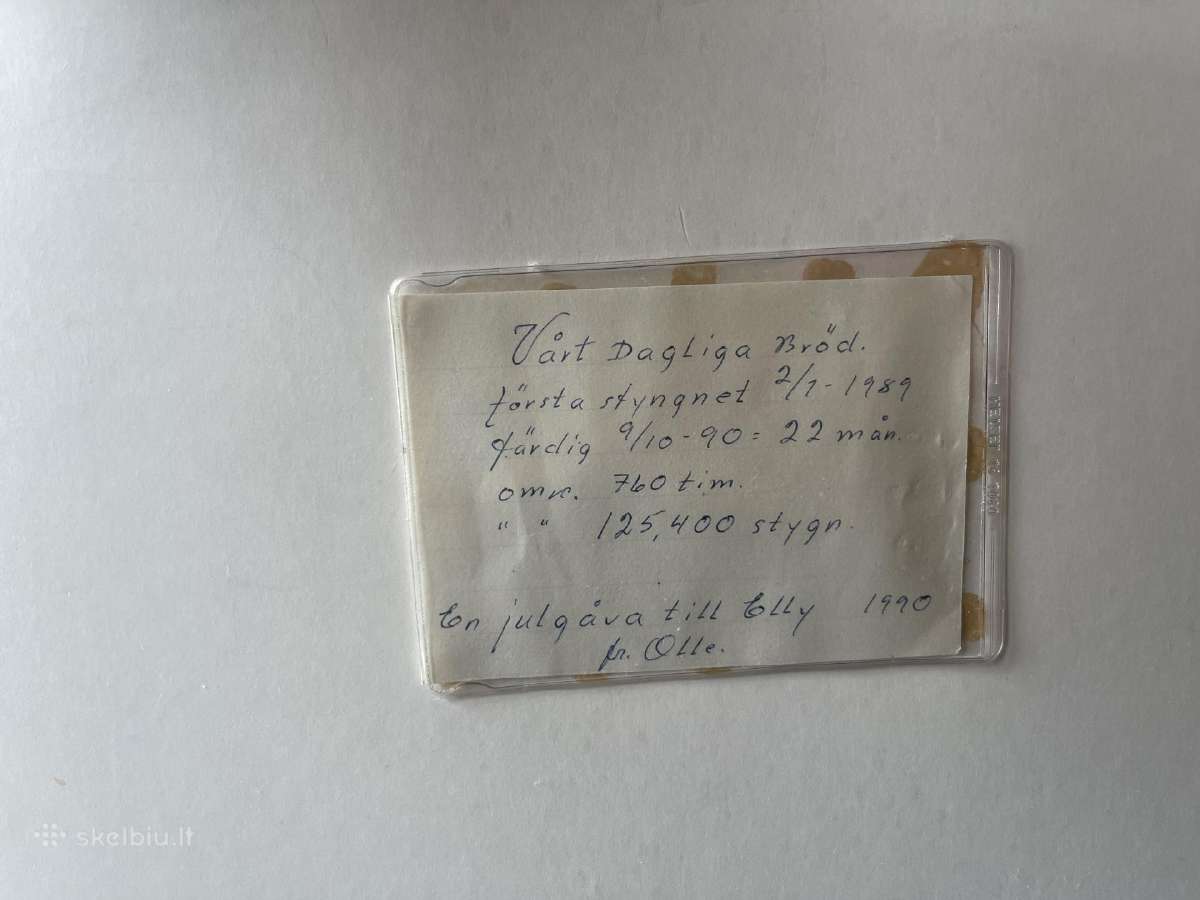 Vårt Dagliga Bröd.
första styngnet 2/1 - 1989
färdig 9/10 - 90 = 22 mån.
omkr. 760 tim.
" " 125,400 stygn.
En julgåva till Elly 1990
fr. Olle.
skelbiu.lt